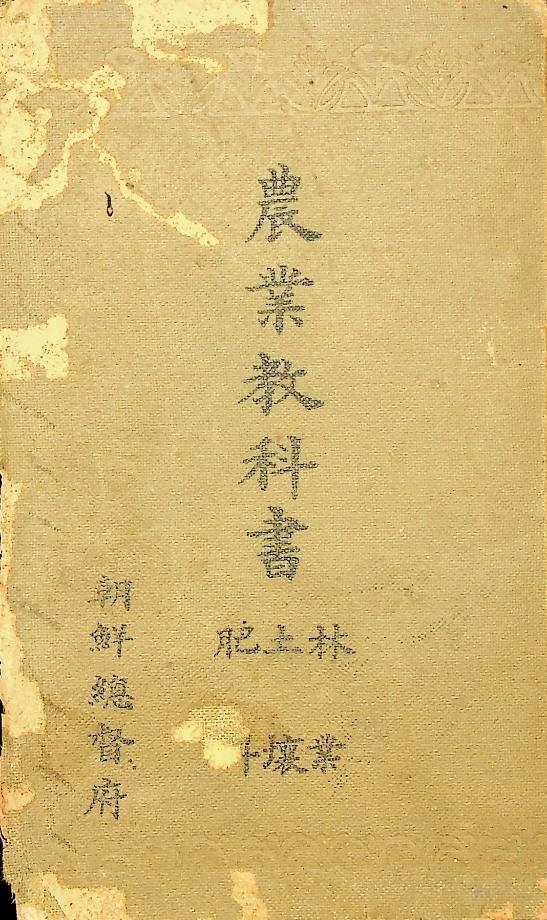 農業教科書
林業
土壤
肥
朝鮮總督府